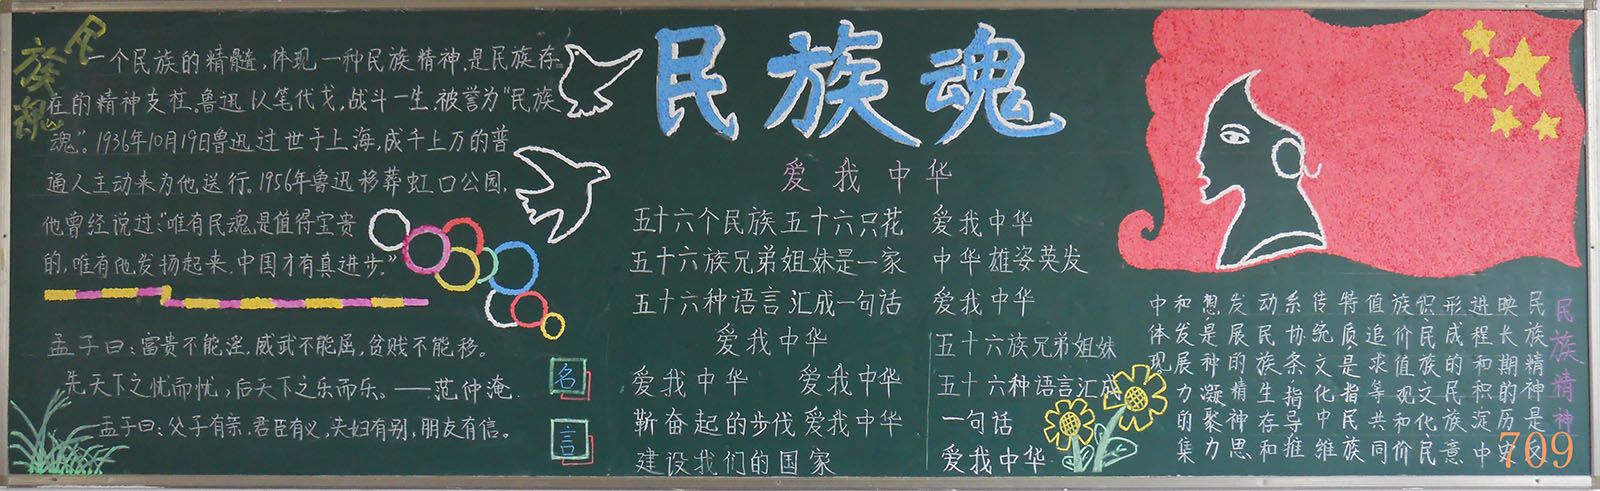 民族魂
一个民族的精髓，体现一种民族精神，是民族存
在的精神支柱。鲁迅以笔代戈，战斗一生，被誉为“民族
魂”。1936年10月19日鲁迅过世于上海，成千上万的普
通人主动来为他送行。1956年鲁迅移葬虹口公园，
他曾经说过：“唯有民魂是值得宝贵
的，唯有他发扬起来，中国才有真进步。”
孟子曰：富贵不能淫，威武不能屈，贫贱不能移。
先天下之忧而忧，后天下之乐而乐。——范仲淹
孟子曰：父子有亲，君臣有义，夫妇有别，朋友有信。
名
言
民族魂
爱我中华
五十六个民族五十六只花
五十六族兄弟姐妹是一家
五十六种语言汇成一句话
爱我中华
爱我中华 爱我中华
靳奋起的步伐爱我中华
建设我们的国家
爱我中华
中华雄姿英发
爱我中华
五十六族兄弟姐妹
五十六种语言汇成
一句话
爱我中华
民族精神
民族精神是反
映长期的历史
进程和积淀中
形成的民族意
识民族文化民
族价值观和价
值追求等共同
特质是指民族
传统文化中维
系协条指导推
动民族生存和
发展的精神思
想是神凝聚力
和发展力的集
中体现
709